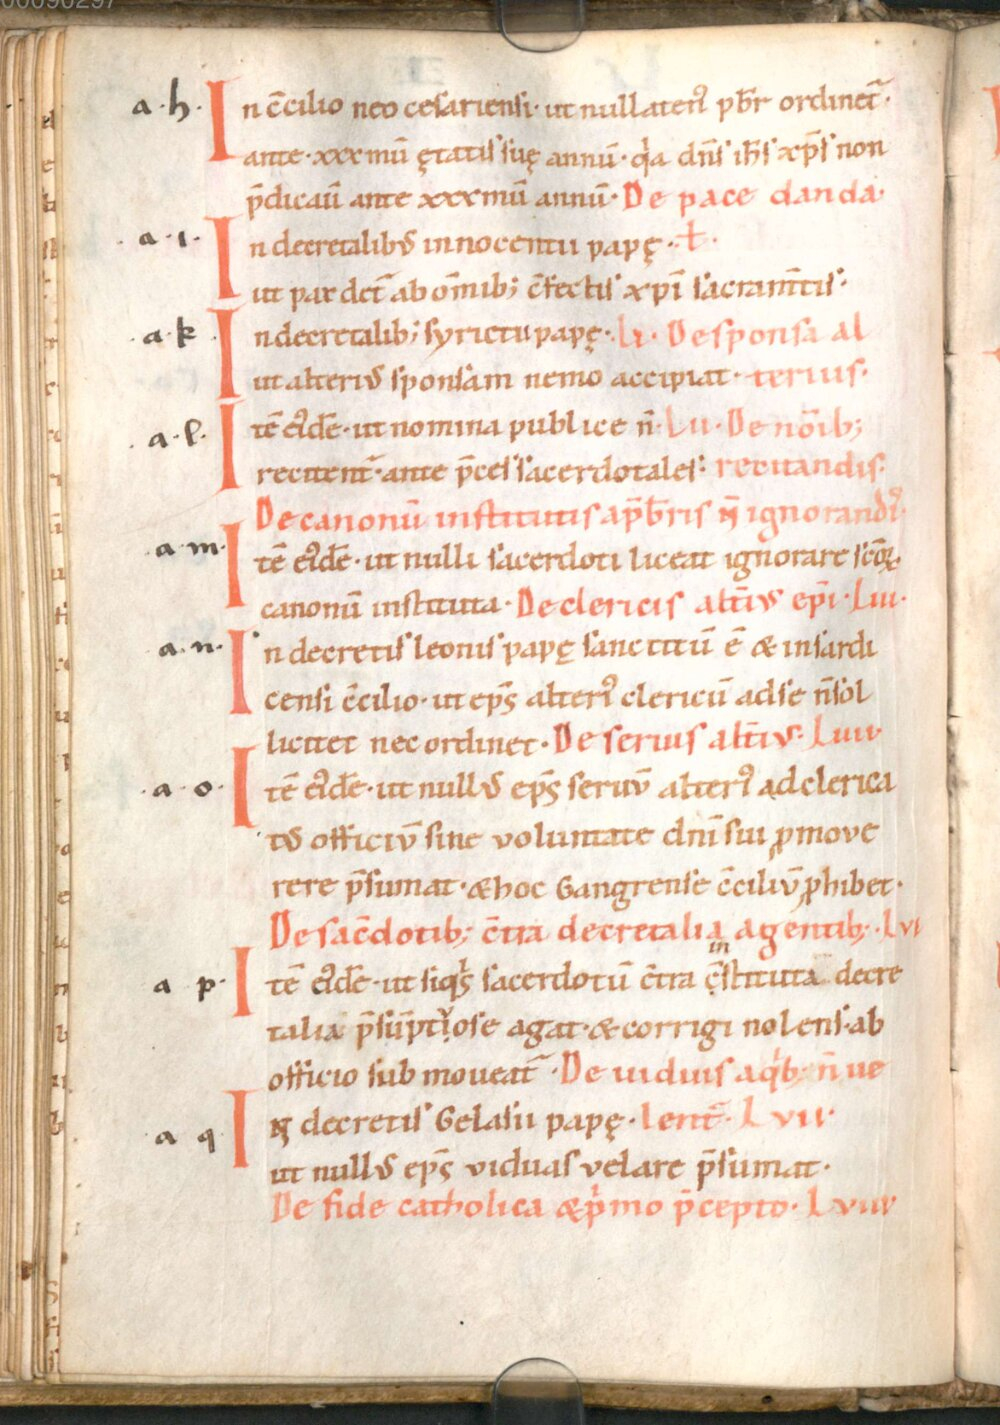 a·h· In c̄cilio neo cesariensi· ut nullaten᷒ pb̄r ordinet᷑·
ante·xxxmū ętatis suę annū· qͣa dn̄s ih̄s xp̄s non
p̄dicaū ante xxxmū annū· De pace danda·
·a·i· In decretalibꝰ innocentii papę· ·Ł·
ut pax det᷑ ab om̄ib; c̄fectis xp̄i sacram̄tis·
·a·k· In decretalib; syricii papę· Li· De sponsa al
ut alteriꝰ sponsam nemo accipiat· terius·
·a·l· Itē eiꝰdē· ut nomina publice n̄· Lii· De noīb;
recitent᷑·ante p̄ces sacerdotales· recitandis·
De canonū institutis a p̄b̄ris n̄ ignorand᷒·
·a·m· Itē eiꝰdē· ut nulli sacerdoti liceat ignorare sc̄oꝝ
canonū instituta· De clericis alt̄iꝰ ep̄i· Liii·
a·n· In decretis leonis papę sanctitū ē & in sardi
censi c̄cilio· ut ep̄s alteri᷒ clericū ad se n̄ sol
licitet nec ordinet· De seruis alt̄iꝰ· Liiii·
·a·o· Itē eiꝰdē· ut nullꝰ ep̄s seruū alteri᷒ ad clerica
tꝰ officiū sine voluntate dn̄i sui ꝓmove
rere p̄sumat· & hoc Gangrense c̄ciliū ꝓhibet·
De sac̄dotib; c̄tra decretalia agentib;· Lvi
a p· Itē eiꝰdē· ut siqͥs sacerdotū c̄tra c̄stituta in decre
talia p̄sūptiose agat· & corrigi nolens· ab
officio submoueat᷑· De uiduis a qͥb; n̄ ue
a q In decretis Gelasii papę· lent᷑· Lvii·
ut nullꝰ ep̄s viduas velare p̄sumat·
De fide catholica & pͥmo p̄cepto· Lviii